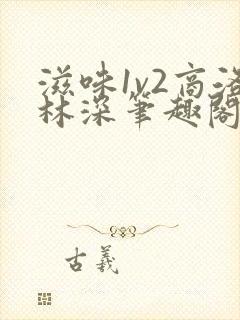 滋味1v2高洛
林深笔趣阁
古羲